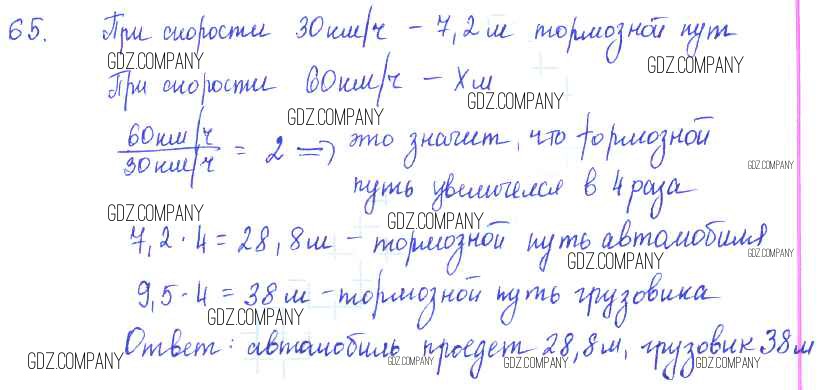 65. При скорости 30км/ч – 7,2м тормозной путь
GDZ.COMPANY GDZ.COMPANY
При скорости 60км/ч – Xм
GDZ.COMPANY GDZ.COMPANY
60км/ч / 30км/ч = 2 => это значит, что тормозной
GDZ.COMPANY
путь увеличелся в 4 раза
GDZ.COMPANY GDZ.COMPANY
7,2 · 4 = 28,8м – тормозной путь автомобиля
GDZ.COMPANY GDZ.COMPANY
9,5 · 4 = 38м – тормозной путь грузовика
GDZ.COMPANY
Ответ: автомобиль проедет 28,8м, грузовик 38м
GDZ.COMPANY GDZ.COMPANY GDZ.COMPANY GDZ.COMPANY